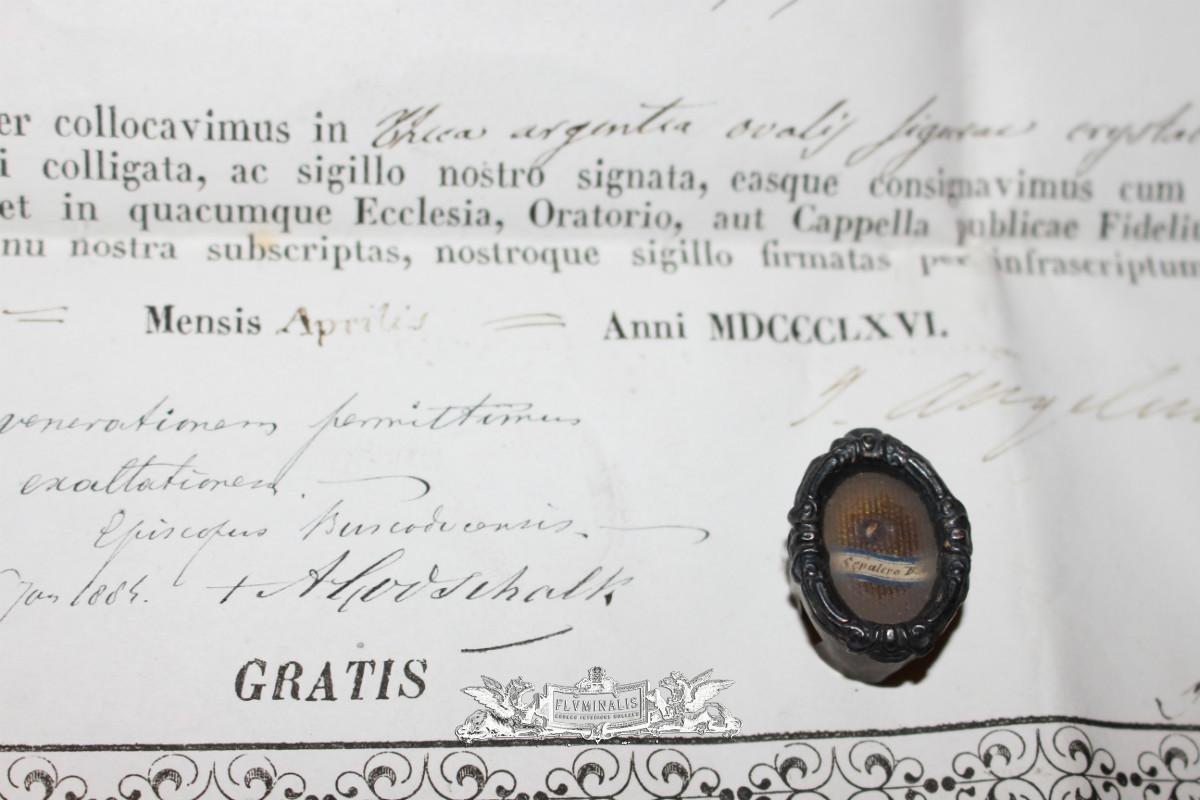 er collocavimus in theca argentea ovalis figurae crystal
i colligata, ac sigillo nostro signata, easque consignavimus cum
et in quacumque Ecclesia, Oratorio, aut Cappella publicae Fideliu
nu nostra subscriptas, nostroque sigillo firmatas per infrascriptum
Mensis Aprilis Anni MDCCCLXVI.
venerationem permittimus
exaltationem.
Episcopus Buscoducensis.
Jan 1884. + A Godschalk
Sepulcro B.
GRATIS
FLVMINALIS